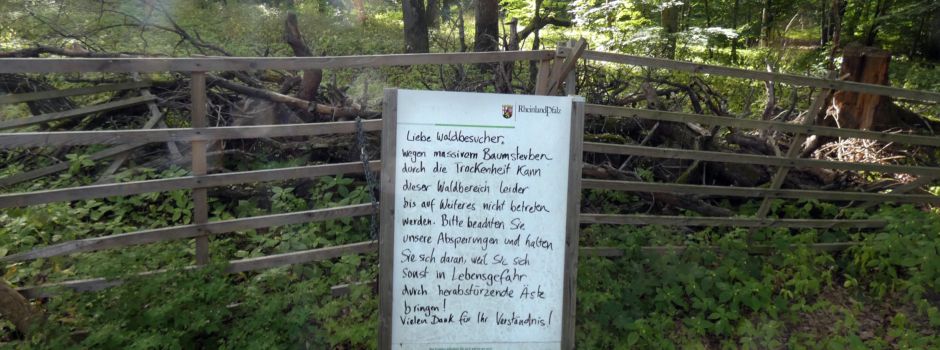 RheinlandPfalz
Liebe Waldbesucher,
wegen massivem Baumsterben
durch die Trockenheit kann
dieser Waldbereich leider
bis auf Weiteres nicht betreten
werden. Bitte beachten Sie
unsere Absperrungen und halten
Sie sich daran, weil Sie sich
sonst in Lebensgefahr
durch herabstürzende Äste
bringen!
Vielen Dank für Ihr Verständnis!